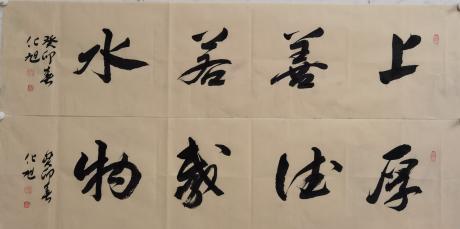 上善若水
癸卯春
化旭
厚德载物
癸卯春
化旭